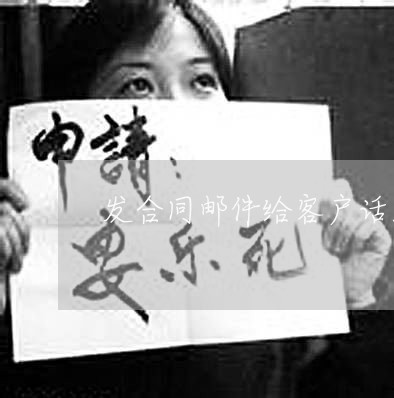 申請：
发合同邮件给客户话
安乐死